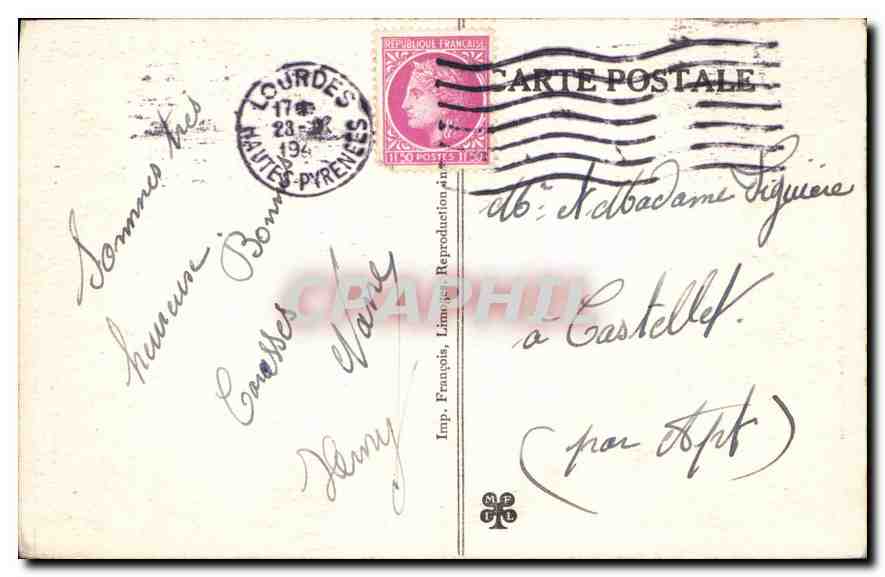 LOURDES
17
23-
194
HAUTES-PYRENEES
REPUBLIQUE FRANÇAISE
1F.50 POSTES 1F.50
CARTE POSTALE
Sommes très
heureuse. Bonnes
Caresses
Henry
Imp. François, Limoges. Reproduction in
Mr. et Madame Siguiere
à Castellet.
(par Apt)
M F
I L
CPAPHIL